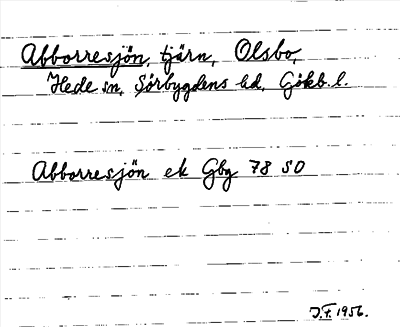 Abborresjön, tjärn, Olsbo,
Hede sn, Sörbygdens hd, Götb. l.
Abborresjön ek Gbg 78 SO
J.F. 1956.